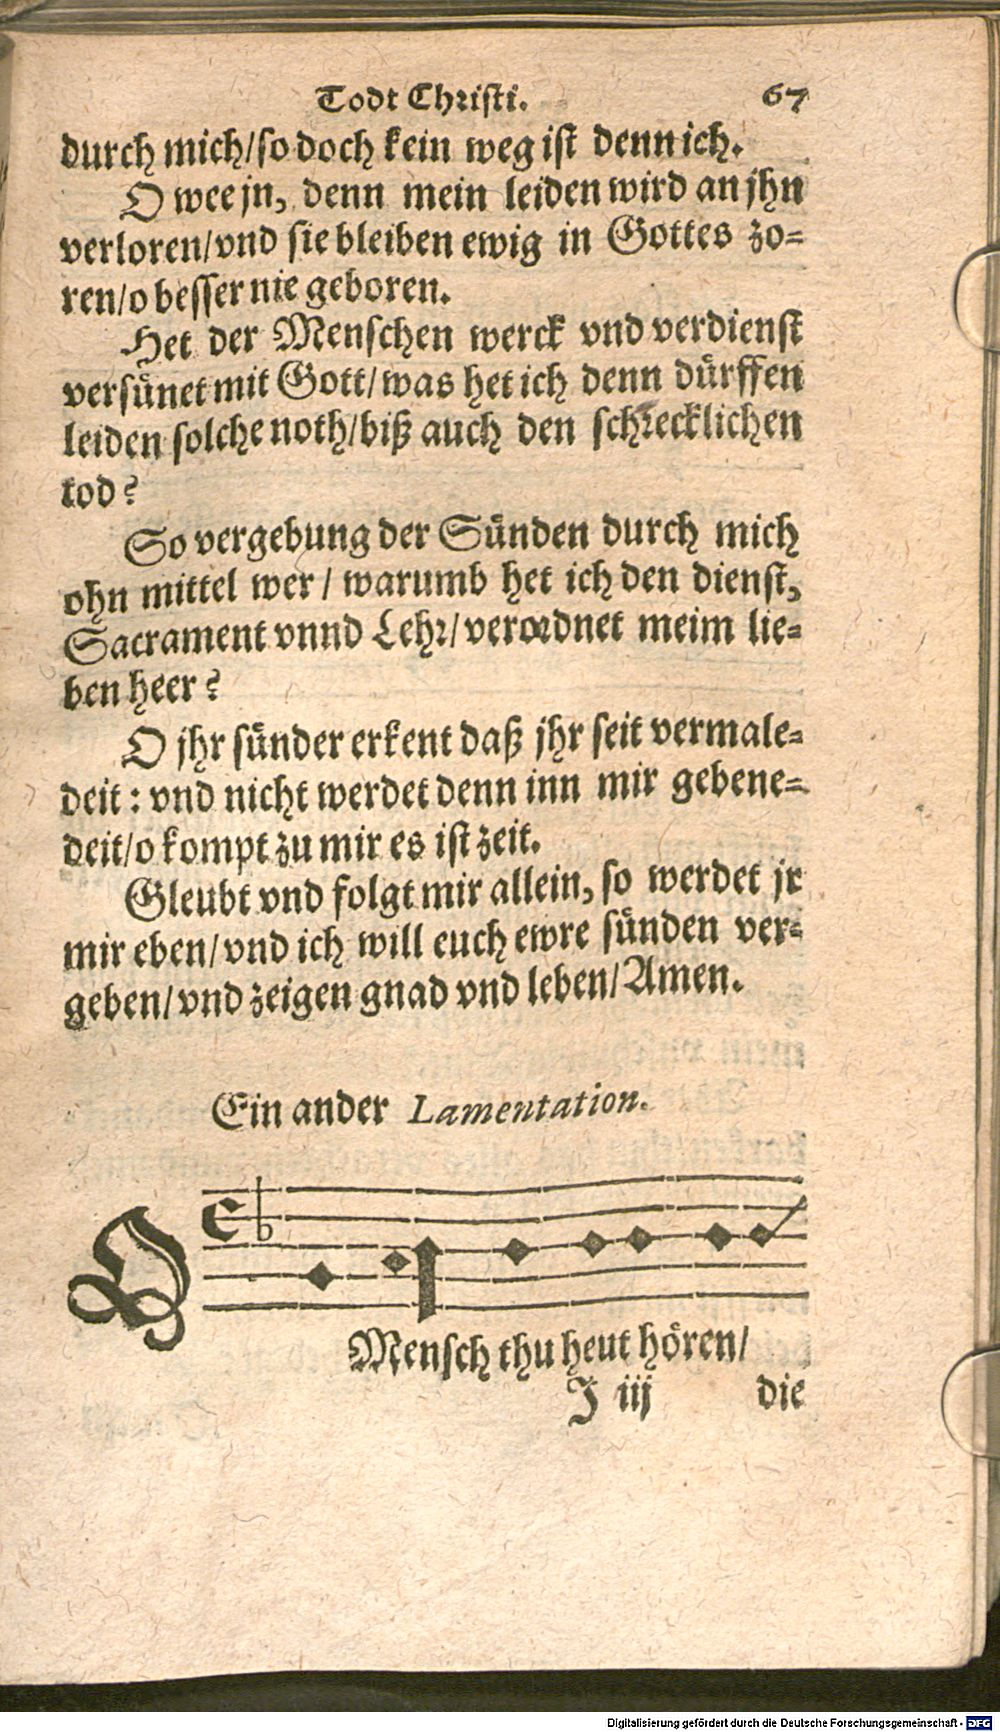 Todt Christi. 67
durch mich/so doch kein weg ist denn ich.
O wee jn, denn mein leiden wird an jhn
verloren/vnd sie bleiben ewig in Gottes zo-
ren/o besser nie geboren.
Het der Menschen werck vnd verdienst
versünet mit Gott/was het ich denn dürffen
leiden solche noth/biß auch den schrecklichen
tod?
So vergebung der Sünden durch mich
ohn mittel wer/ warumb het ich den dienst,
Sacrament vnnd Lehr/verordnet meim lie-
ben heer?
O jhr sünder erkent daß jhr seit vermale-
deit: vnd nicht werdet denn inn mir gebene-
deit/o kompt zu mir es ist zeit.
Gleubt vnd folgt mir allein, so werdet jr
mir eben/vnd ich will euch ewre sünden ver-
geben/vnd zeigen gnad vnd leben/Amen.
Ein ander Lamentation.
O
Mensch thu heut hören/
J iij die
Digitalisierung gefördert durch die Deutsche Forschungsgemeinschaft - DFG